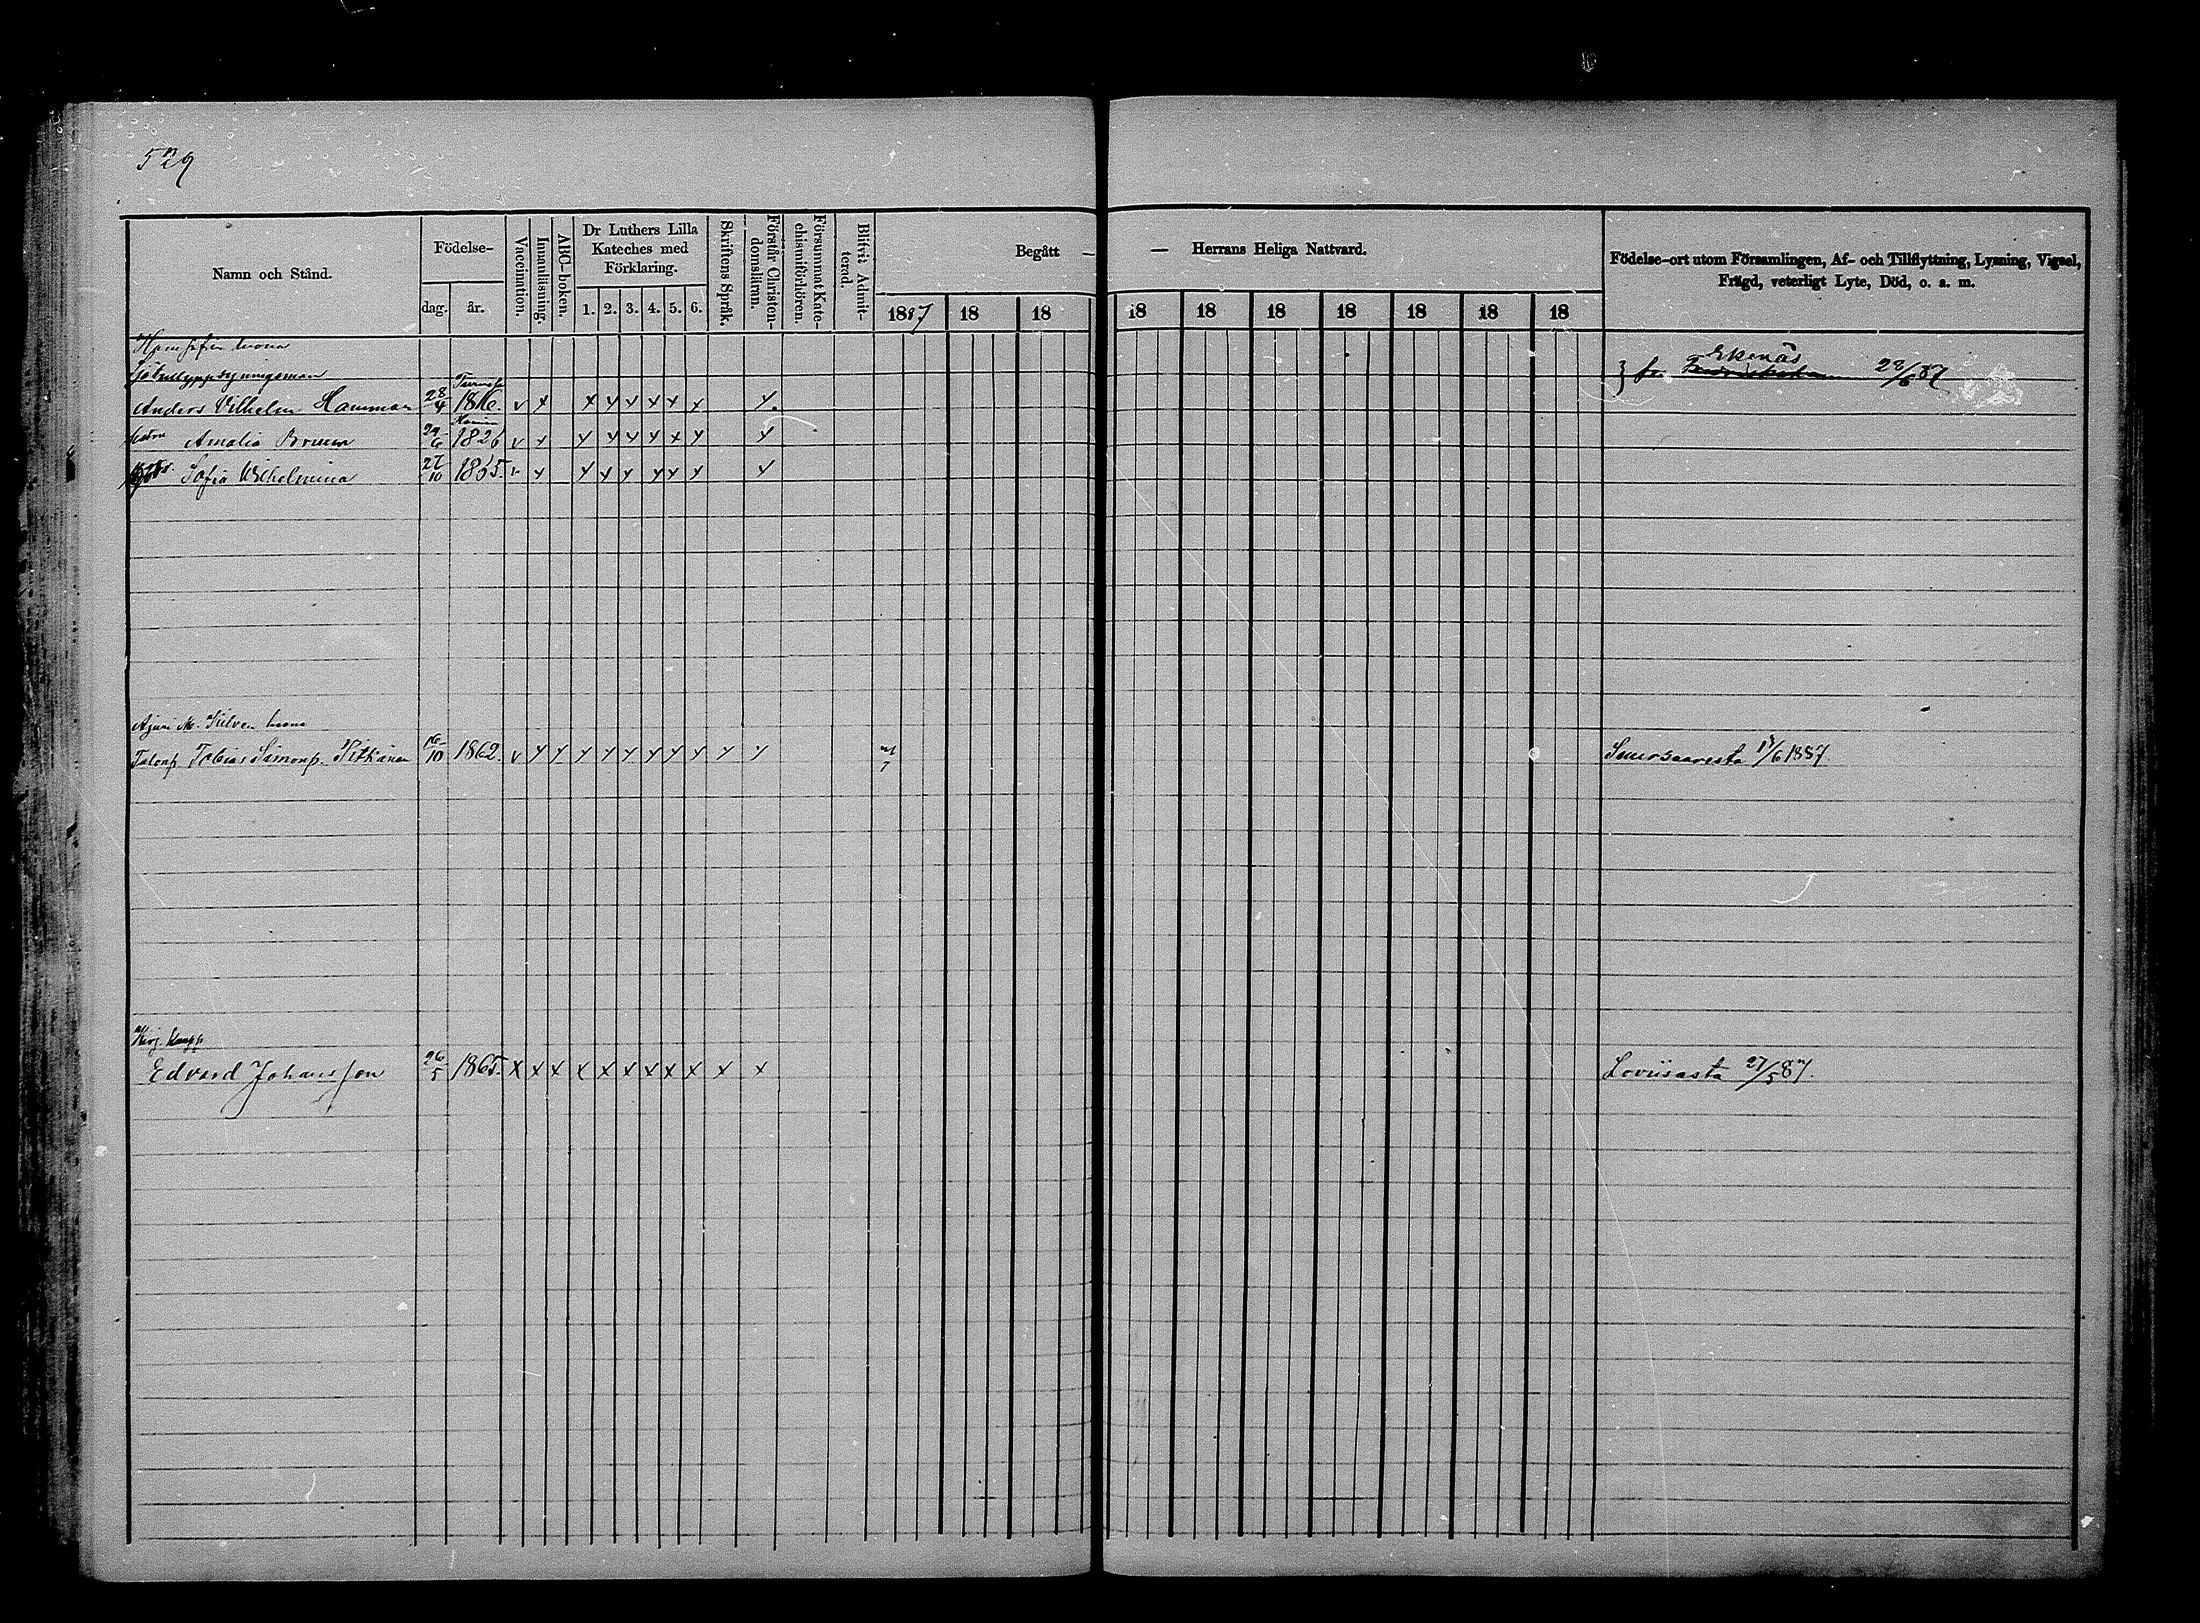 529
Namn och Stånd.
Födelse-
dag.
år.
Vaccination.
Innanläsning.
ABC-boken.
Dr Luthers Lilla
Kateches med
Förklaring.
1. 2. 3. 4. 5. 6.
Skriftens Språk.
Förstår Christen-
domsläran.
Försummat Kate-
chismiförhören.
Blifvit Admit-
terad.
Begått — — Herrans Heliga Nattvard.
1887 18 18 18 18 18 18 18 18 18
Födelse-ort utom Församlingen, Af- och Tillflyttning, Lysning, Vigsel,
Frägd, veterligt Lyte, Död, o. a. m.
Ekenäs
} fr. 28/6 87
Anders Vilhelm Hammar 28/4 1816. v x x x x x x x x
Amalia 29/6 1826 v x x x x x x x x
Sofia Wilhelmina 27/10 1855. v x x x x x x x x
Talonp. Tobias Simonp. Pitkänen 16/10 1862. v x x x x x x x x x x Suursaaresta 17/6 1887
Edvard Johansson 26/5 1865. x x x x x x x x x x x Loviisasta 27/5 87.